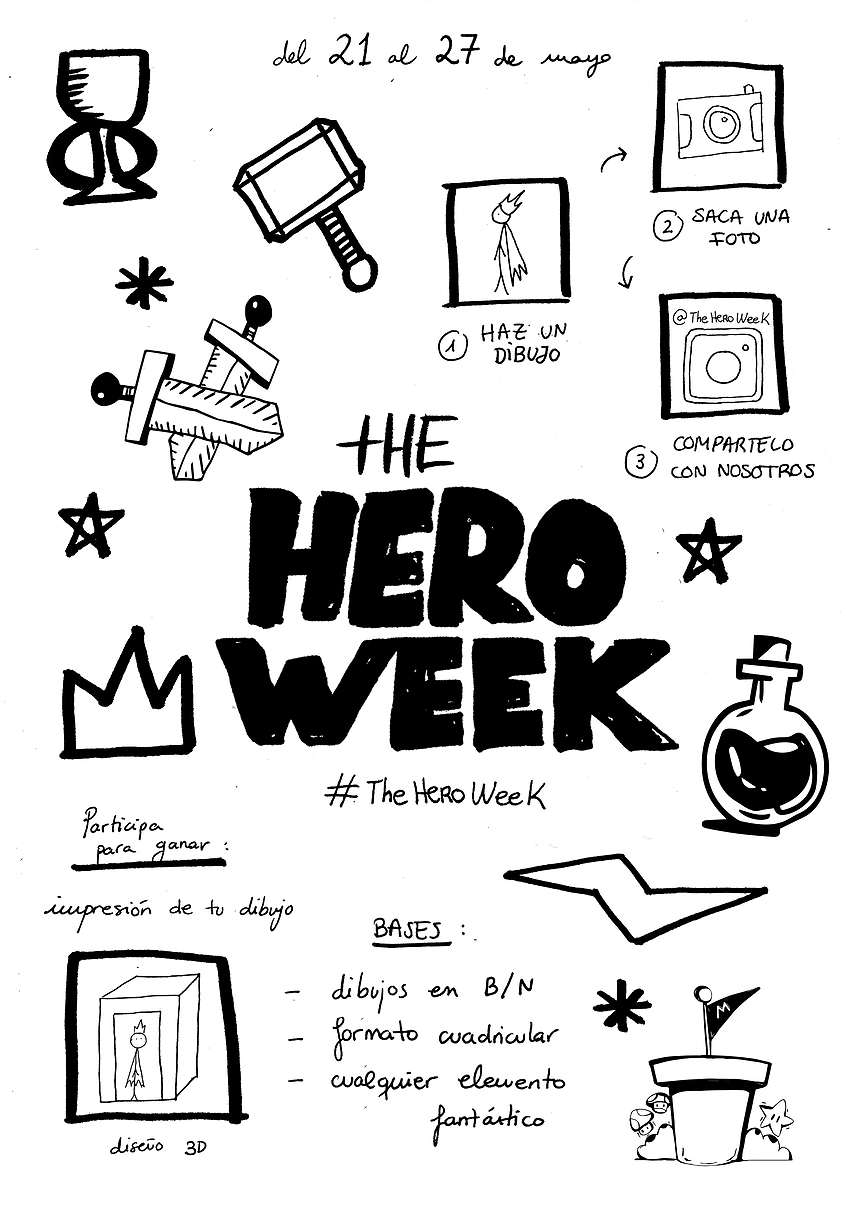 del 21 al 27 de mayo
1 HAZ UN
DIBUJO
2 SACA UNA
FOTO
@TheHeroWeeK
3 COMPARTELO
CON NOSOTROS
THE
HERO
WEEK
#TheHeroWeeK
Participa
para ganar:
impresión de tu dibujo
diseño 3D
BASES:
- dibujos en B/N
- formato cuadricular
- cualquier elemento
fantástico
M